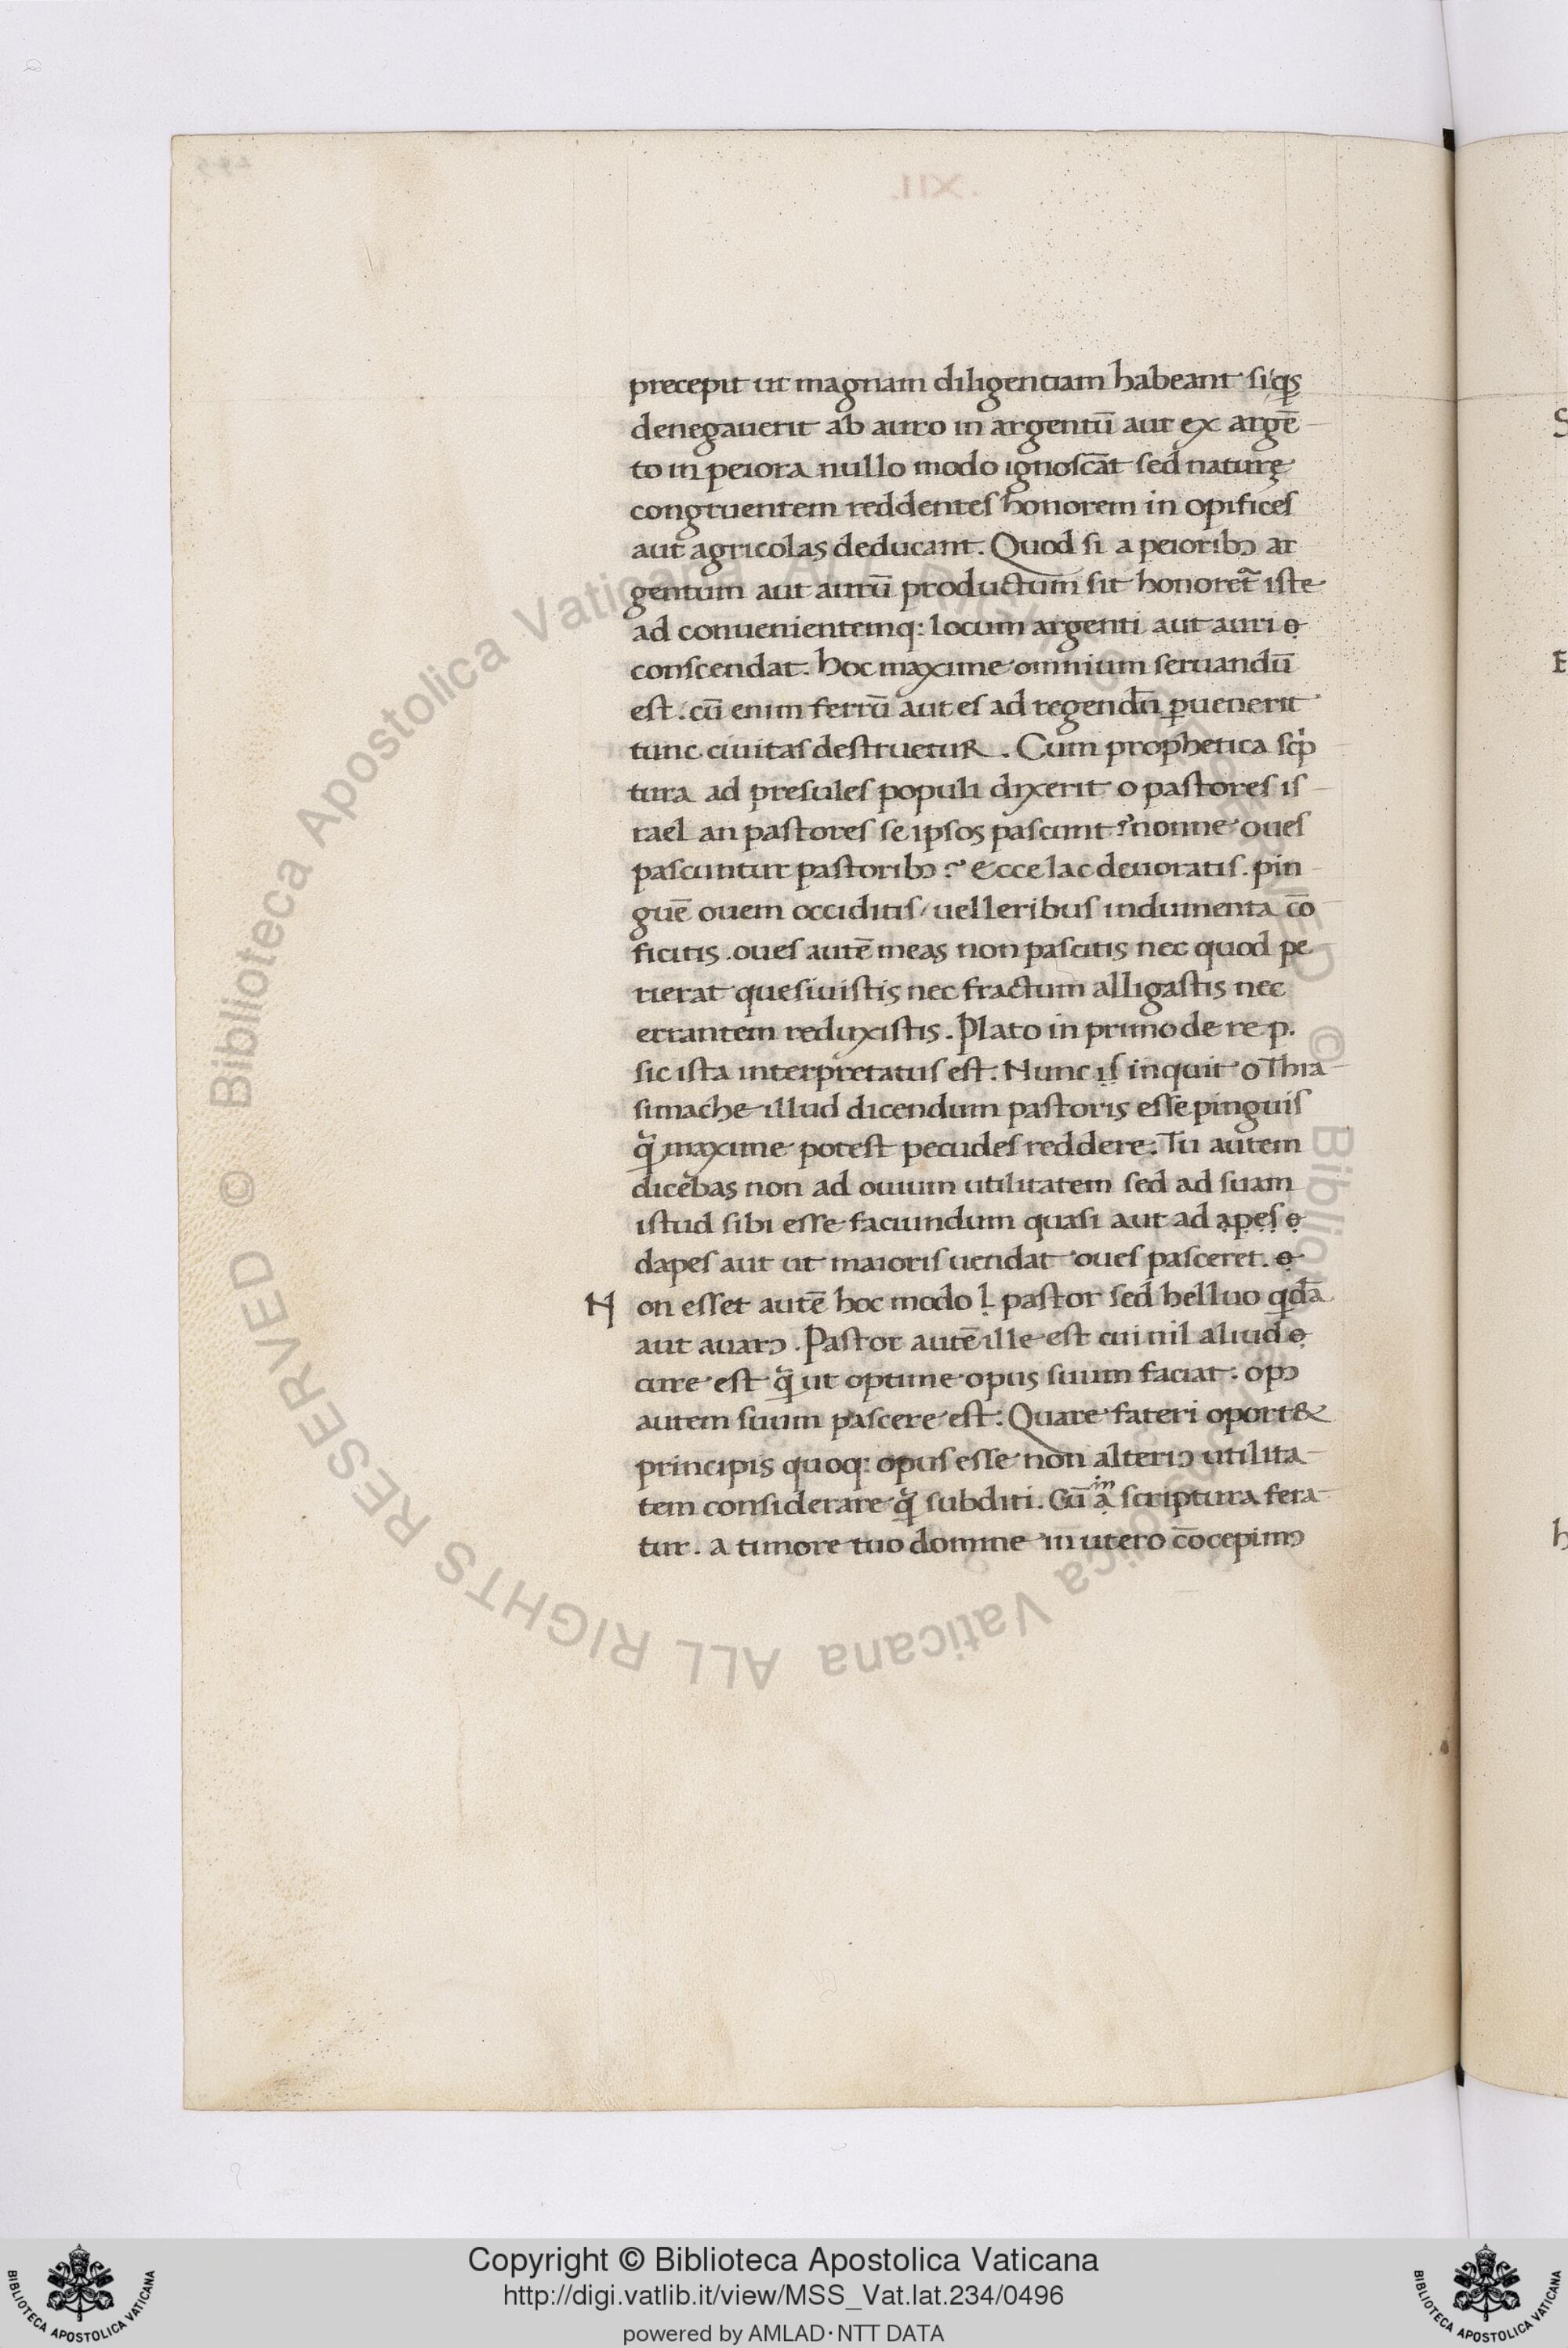 precepit ut magnam diligentiam habeant si qꝭ
denegauerit ab auro in argentū aut ex argē
to in peiora nullo modo ignoscāt sed naturę
congruentem reddentes honorem in opifices
aut agricolas deducant. Quod si a peioribꝰ ar
gentum aut aurū productum sit honoret᷑ iste
ad conuenientemq: locum argenti aut auri o
conscendat. hoc maxime omnium seruandū
est. cū enim ferrū aut es ad regendū ꝑuenerit
tunc ciuitas destruetuR. Cum prophetica scp̍
tura ad presules populi dixerit o pastores is
rael an pastores se ipsos pascunt? nonne oues
pascuntur pastoribꝰ? Ecce lac deuoratis. pin
guē ouem occiditis/ uelleribus indumenta cō
ficitis. oues autē meas non pascitis nec quod pe
rierat quesiuistis nec fractum alligastis nec
errantem reduxistis. Plato in primo de re p.
sic ista interpretatus est. Nunc is inquit o Thra
simache illud dicendum pastoris esse pinguis
qᷓ maxime potest pecudes reddere. Tu autem
dicebas non ad ouium utilitatem sed ad suam
istud sibi esse faciundum quasi aut ad apes o
dapes aut ut maioris uendat oues pasceret. o
Non esset autē hoc modo l pastor sed helluo qdā
aut auarꝰ. Pastor autē ille est cui nil aliud o
cure est qᷓ ut optime opus suum faciat. opꝰ
autem suum pascere est. Quare fateri oport&
principis quoq: opus esse non alteriꝰ utilita
tem considerare qᷓ subditi. Cū in a scriptura fera
tur. a timore tuo domine in utero cōcepimꝰ
.XII.
© Biblioteca Apostolica Vaticana ALL RIGHTS RESERVED © Biblioteca Apostolica Vaticana ALL RIGHTS RESERVED
Copyright © Biblioteca Apostolica Vaticana
http://digi.vatlib.it/view/MSS_Vat.lat.234/0496
powered by AMLAD·NTT DATA
BIBLIOTECA APOSTOLICA VATICANA
BIBLIOTECA APOSTOLICA VATICANA